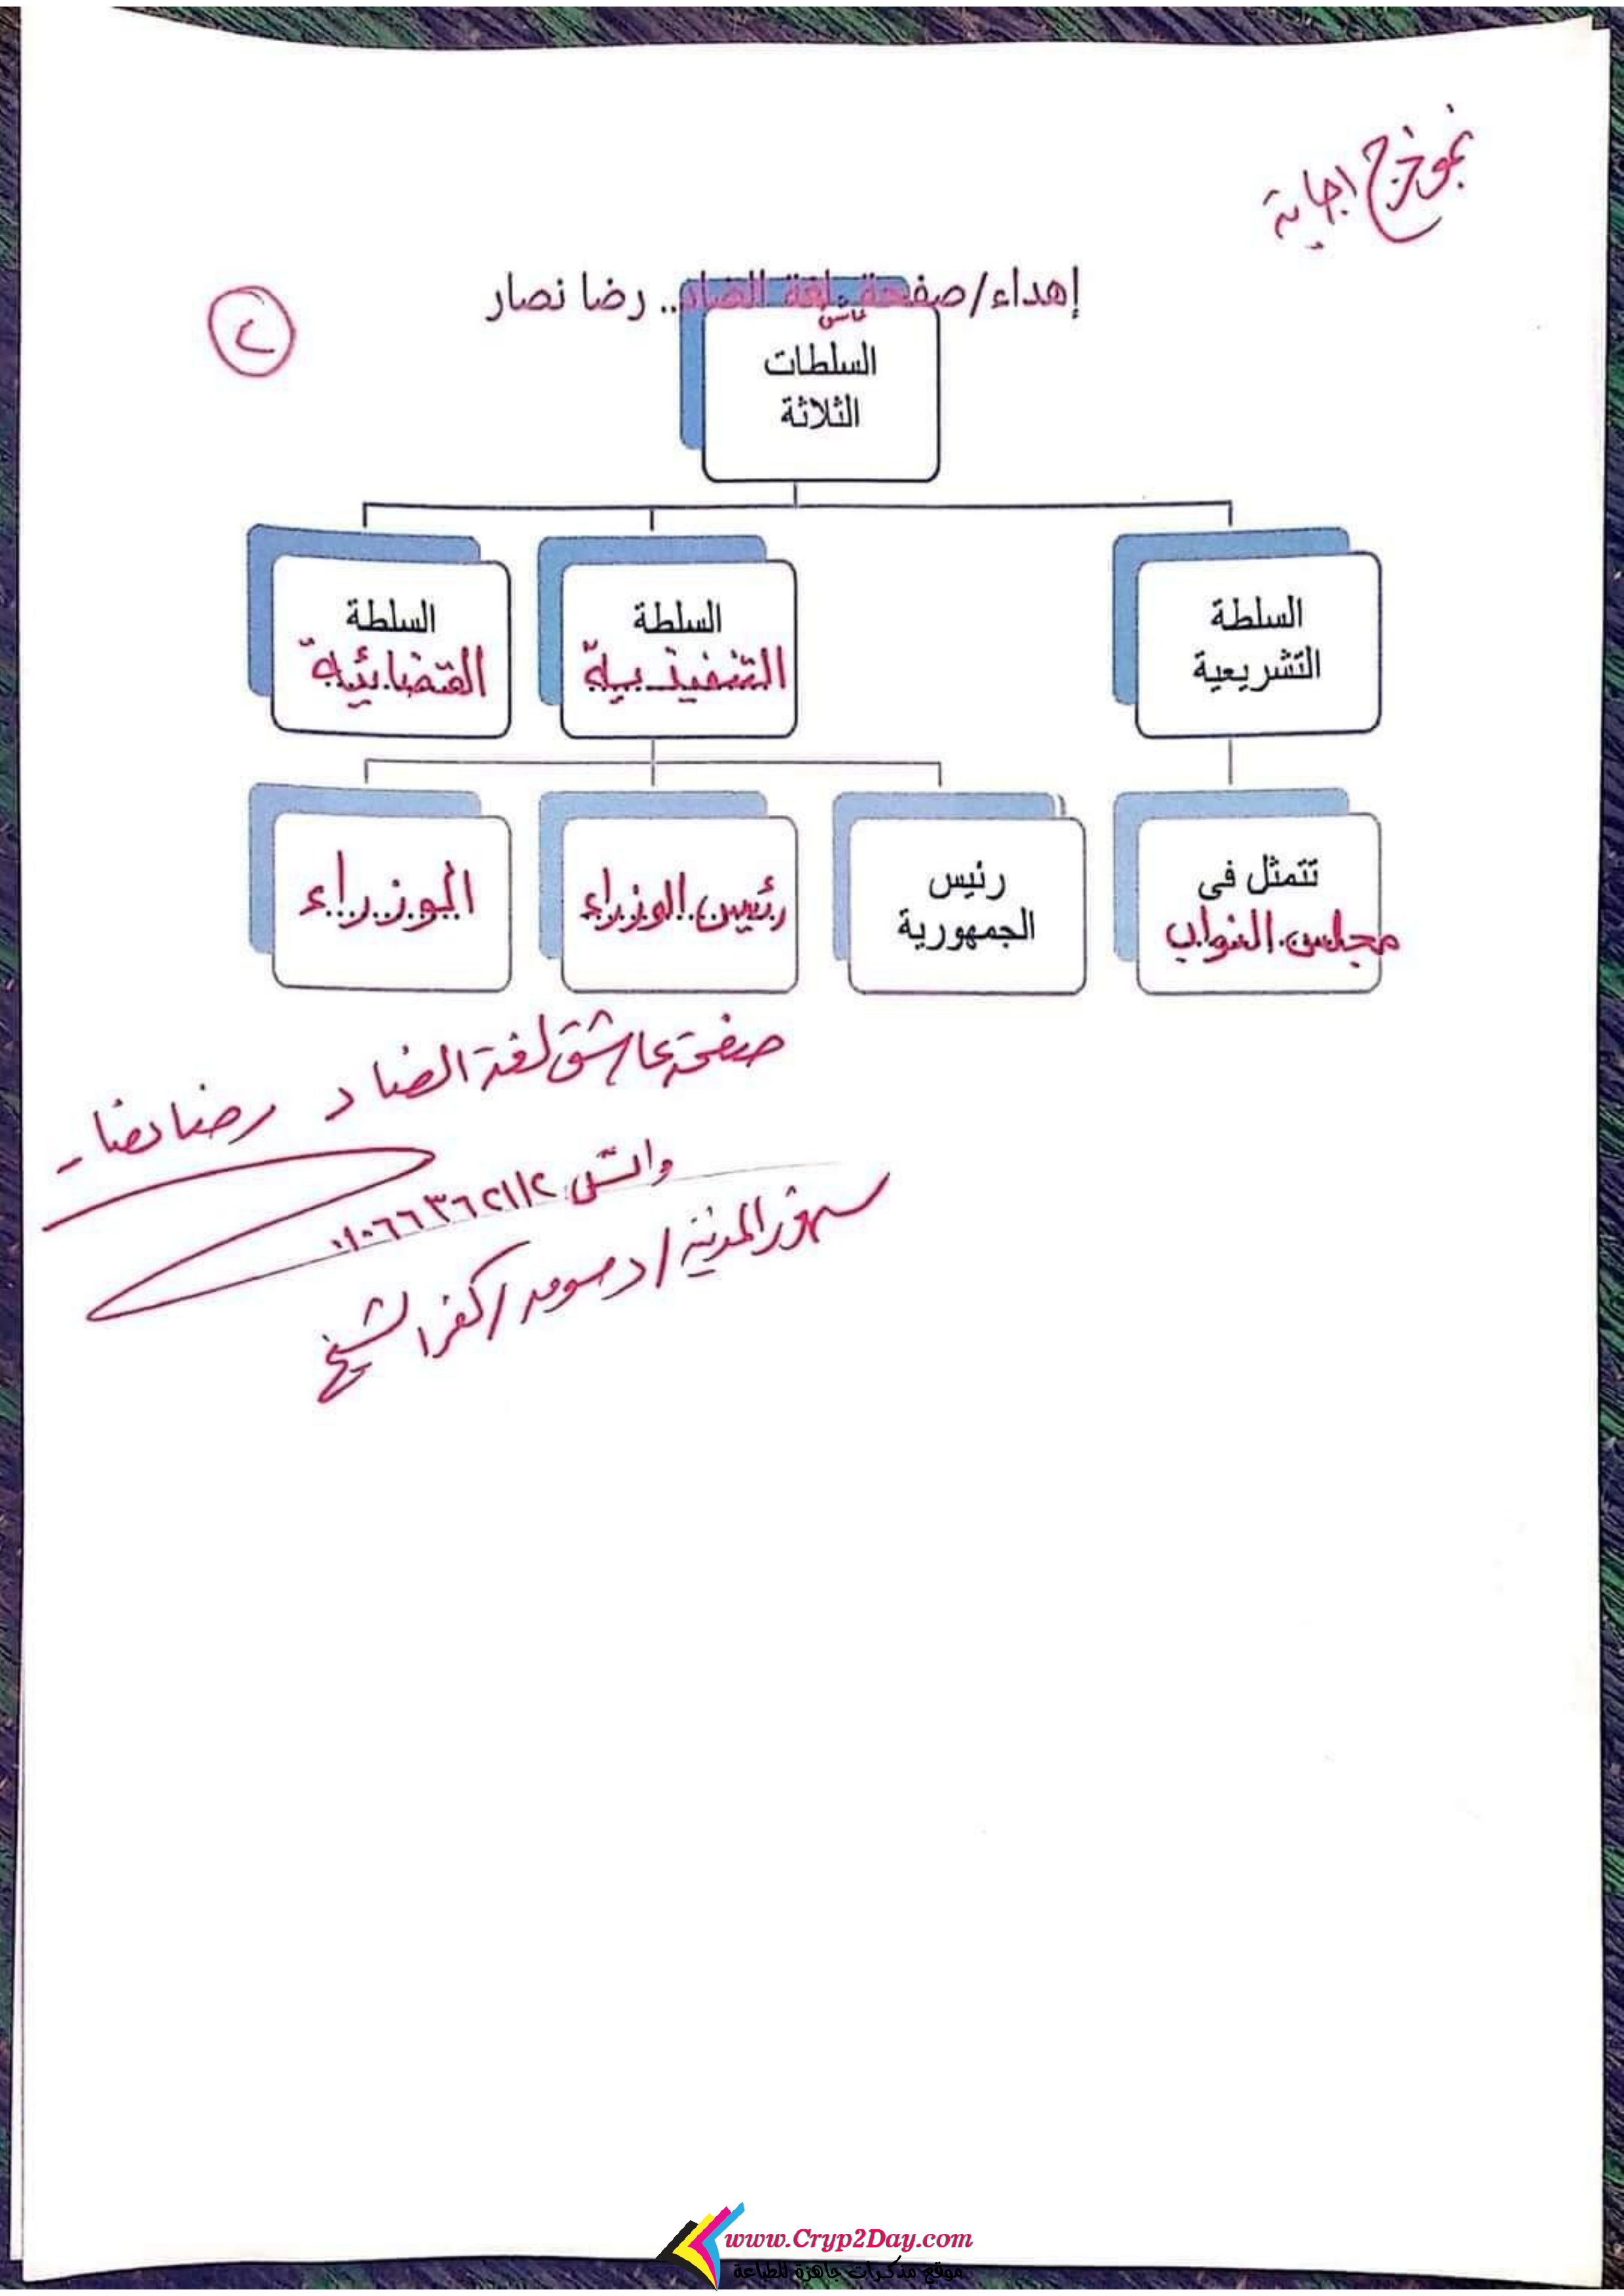 نموذج إجابة
إهداء/صفحة عاشق لغة الضاد.. رضا نصار
٢
السلطات
الثلاثة
السلطة
التشريعية
السلطة
التنفيذية
السلطة
القضائية
تتمثل فى
مجلس النواب
رئيس
الجمهورية
رئيس الوزراء
الوزراء
صفحة عاشق لغة الضاد رضا نصار
واتس ٠١٠٦٦٣٦٢١١٢
سنهور المدينة / دسوق / كفر الشيخ
www.Cryp2Day.com
موقع مذكرات جاهزة للطباعة